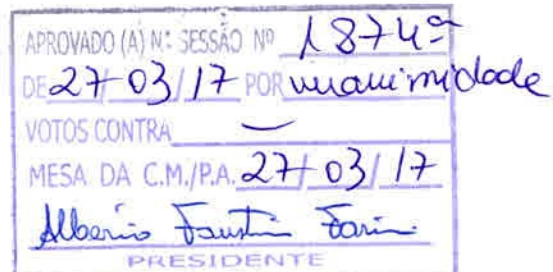 APROVADO (A) Nª SESSÃO Nº 1874ª
DE 27/03/17 POR unanimidade
VOTOS CONTRA —
MESA DA C.M./P.A. 27/03/17
PRESIDENTE